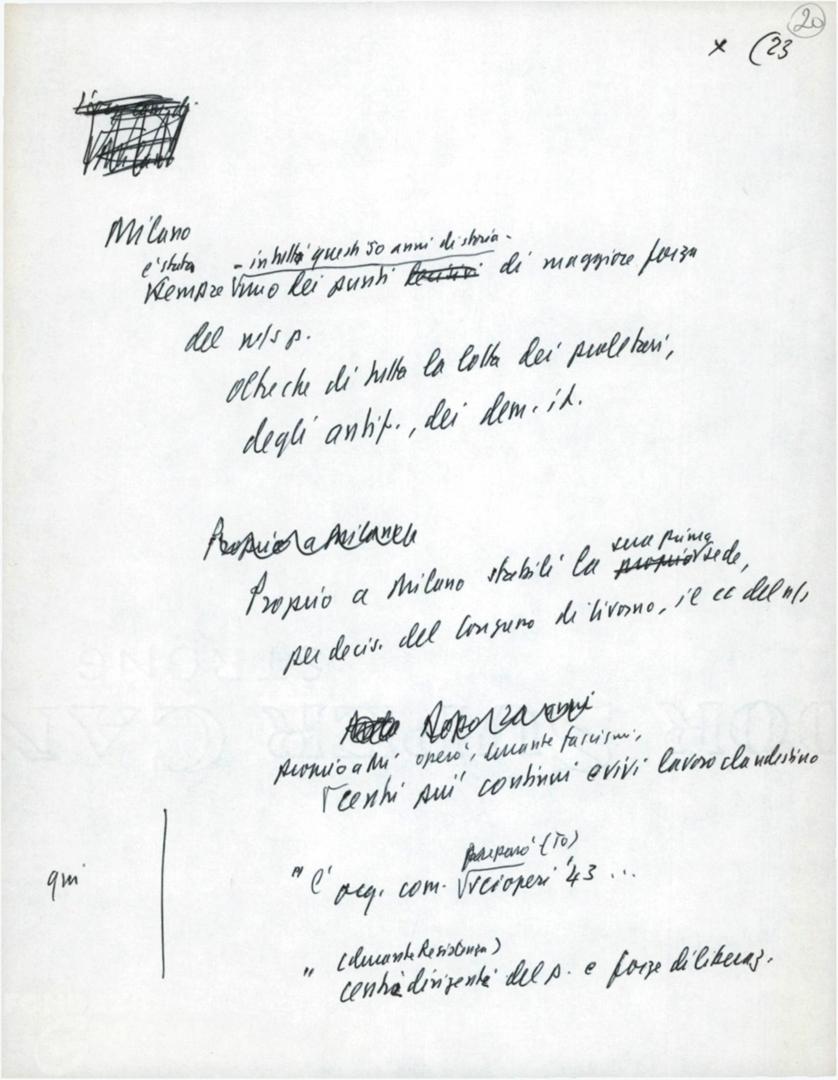 20
x (23
Milano
è stata - in tutti questi 50 anni di storia -
sempre uno dei punti decisivi di maggiore forza
del n/s p.
oltreche di tutta la lotta dei proletari,
degli antif., dei dem. it.
Proprio a Milano
sua prima
Proprio a Milano stabilì la propria sede,
per decis. del Congresso di Livorno, il cc del n/s
Dopo 20 anni
proprio a Mi operò, durante fascismo,
centri più continui e vivi lavoro clandestino
preparò (To)
qui
" l' org. com. scioperi '43 ...
(durante Resistenza)
" centro dirigente del p. e forze di liberaz.